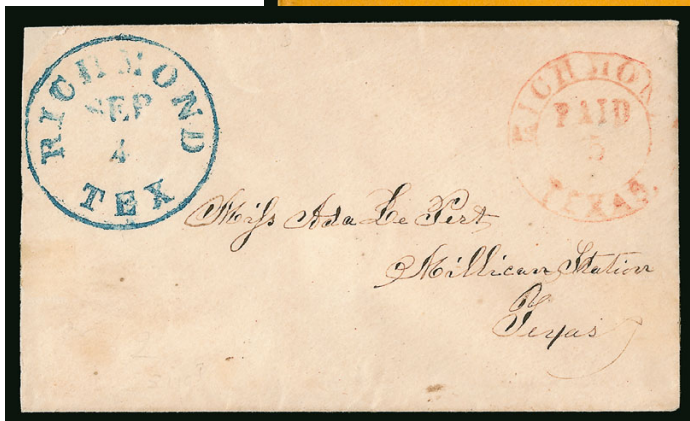 RICHMOND
SEP
4
TEX
RICHMON
PAID
5
TEXAS.
Miss Ada Le Pert
Millican Station
Texas